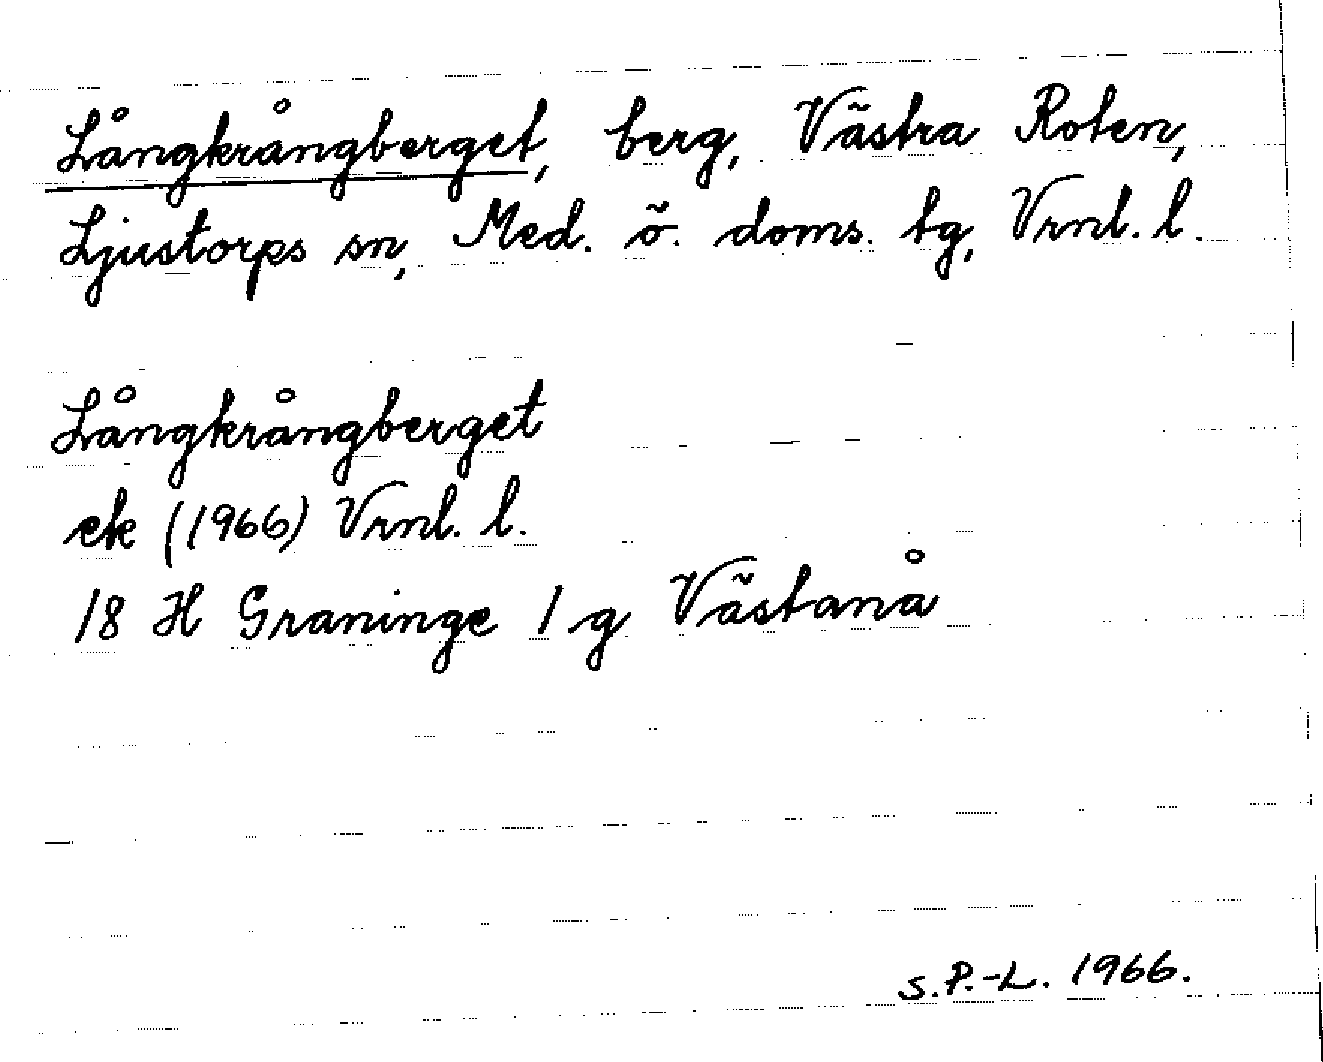 Långkrångberget, berg, Västra Roten,
Ljustorps sn, Med. ö. doms. tg, Vrnl. l.
Långkrångberget
ek (1966) Vrnl. l.
18 H Graninge 1 g Västanå
S.P.-L. 1966.